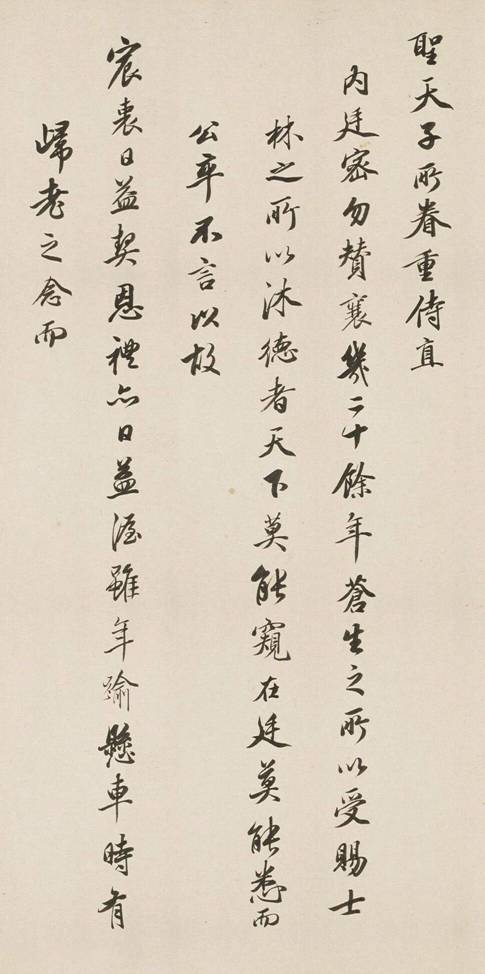 聖天子所眷重侍直
內廷密勿贊襄幾二十餘年蒼生之所以受賜士
林之所以沐德者天下莫能窺在廷莫能悉而
公卒不言以故
宸衷日益契恩禮亦日益渥雖年踰懸車時有
歸老之念而